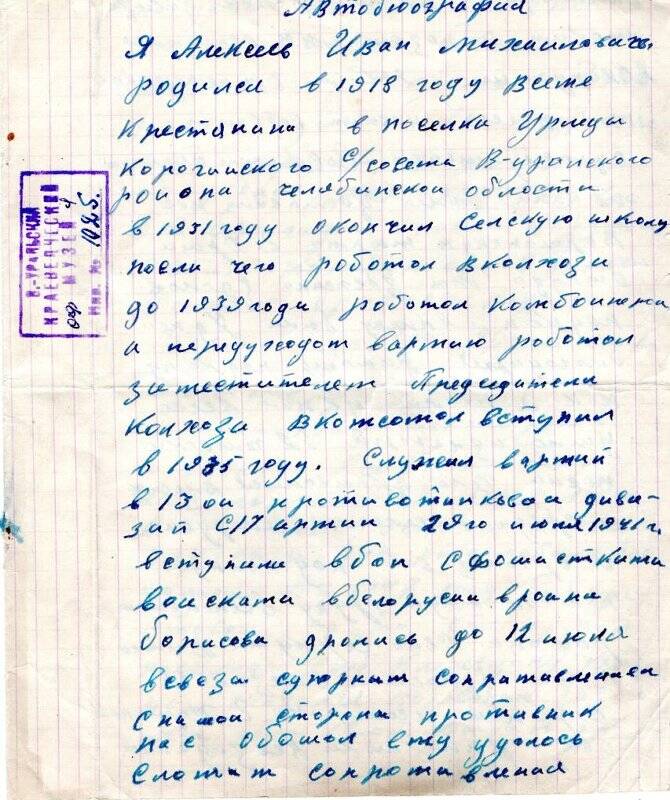 Автобиография
Я Алексель Иван Михаилович
родился в 1918 году Всеме
Крестянина в поселки Урлады
С/совета В-уралского
района челябинской области
в 1931 году окончил Селскую школу
посли чего роботол в Колхози
до 1939 года роботол Комбаинера
а передуходот вармию роботол
заместителем Председатели
Колхоза Вкомсомол вступил
в 1935 году. Служил вармий
в 13 ой противотанковай диви-
зии 29го июня 1941 г.
вступили вбои Сфошисткими
воисками вбелорусии враина
борисова дролись до 12 июля
всвязи супорним сопратавлением
Снашой стороны противник
нас обошол ему удолось
Сломат сопротивления
В.-УРАЛЬСКИЙ
КРАЕВЕДЧЕСКИЙ
МУЗЕЙ
оф Инв. № 1025.